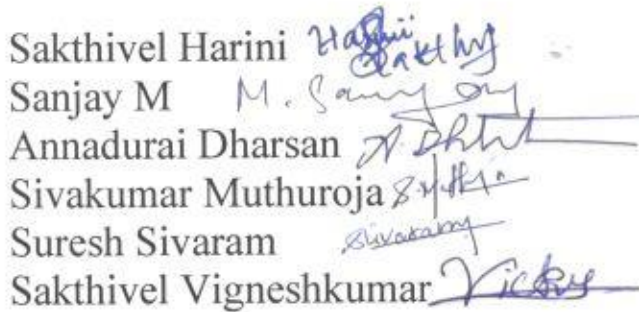 Sakthivel Harini Harini Sakthy
Sanjay M M. Sanjay
Annadurai Dharsan
Sivakumar Muthuroja
Suresh Sivaram Sivaram
Sakthivel Vigneshkumar Vicky